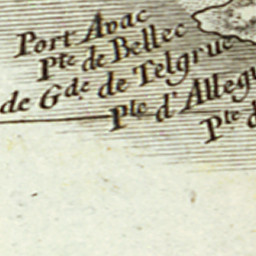 Port Avac
Pte de Bellec
de Gde de Telgruc
Pte d'Allegu
Pte d